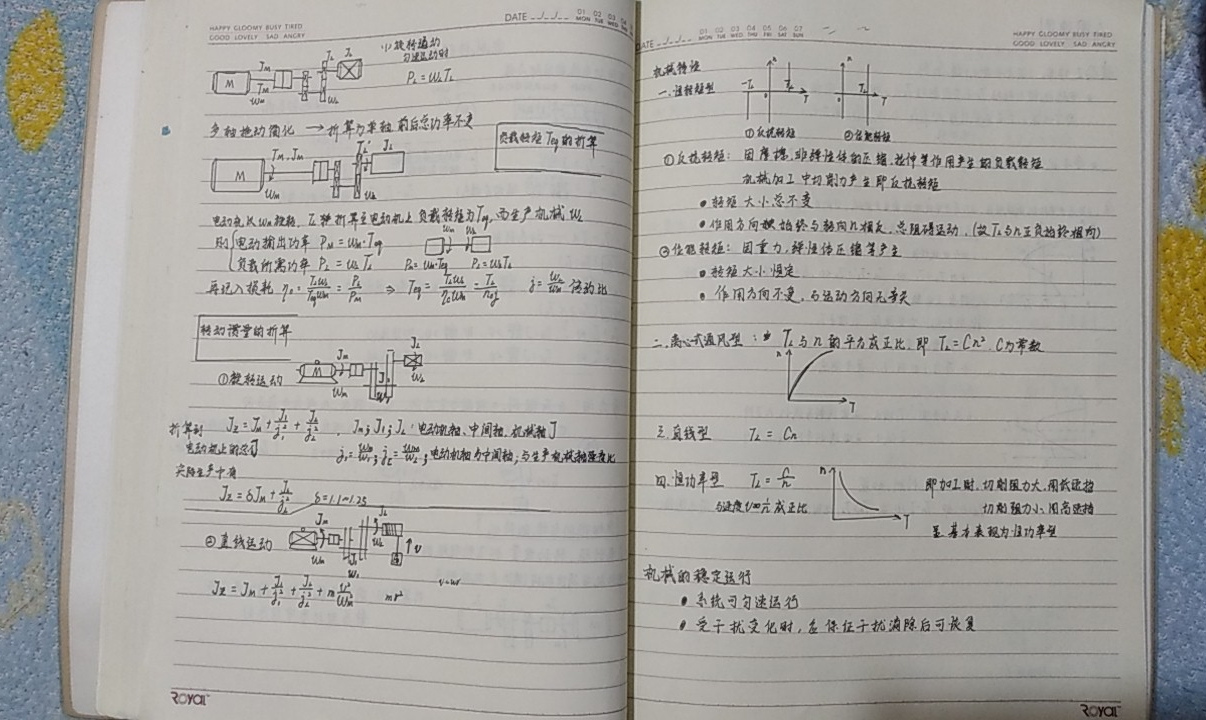 HAPPY GLOOMY BUSY TIRED
GOOD LOVELY SAD ANGRY
DATE
01 02 03 04
MON TUE WED THU
(1) 旋转运动
匀速运动时
P_L = ω_L T_L
M
T_m
ω_m
T_L
J_L
ω_L
多轴拖动简化 → 折算为单轴 前后总功率不变
负载转矩 Teq 的折算
M
T_m, J_m
ω_m
T_L'
J_L
ω_L
电动机以 ω_m 旋转, T_L 折算至电动机上负载转矩为 Teq, 而生产机械 ω_L
则 电动输出功率 P_M = ω_m·Teq
负载所需功率 P_L = ω_L T_L
P_m = ω_m·Teq P_L = ω_L T_L
再记入损耗 η_c = T_Lω_L/Teqω_m = P_L/P_M ⇒ Teq = T_Lω_L/η_cω_m = T_L/η_c j
转动惯量的折算
①旋转运动
M
J_m
ω_m
J_1
J_L
ω_L
折算到
电动机上的总J
J_Z = J_m + J_1/j_1² + J_L/j_L² , J_m; J_1; J_L: 电动机轴、中间轴、机械轴J
j_1 = ω_m/ω_1; j_L = ω_m/ω_L; 电动机轴与中间轴; 与生产机械轴速度比
实际生产中有
J_Z = δJ_m + J_L/j_L² δ=1.1~1.25
②直线运动
J_m
ω_m
J_1
ω_1
J_L
ω_L
v
J_Z = J_m + J_1/j_1² + J_L/j_L² + m v²/ω_m²
mr²
v=ωr
ROYAL
DATE
01 02 03 04 05 06 07
MON TUE WED THU FRI SAT SUN
HAPPY GLOOMY BUSY TIRED
GOOD LOVELY SAD ANGRY
机械特性
一、恒转矩型
n
-T_L
0
T_L
T
n
0
T_L
T
①反抗转矩 ②位能转矩
①反抗转矩: 因摩擦, 非弹性体的压缩, 拉伸等作用产生的负载转矩
机械加工中切削力产生即反抗转矩
• 转矩大小总不变
• 作用方向始终与转向n相反, 总阻碍运动, (故T_L与n正负始终相同)
②位能转矩: 因重力, 弹性体压缩等产生
• 转矩大小恒定
• 作用方向不变, 与运动方向无关
二、离心式通风型: T_L与n的平方成正比, 即 T_L = Cn², C为常数
n
T
三、直线型 T_L = Cn
四、恒功率型 T_L = C/n
n
T
即加工时, 切削阻力大, 用低速档
切削阻力小, 用高速档
基本表现为恒功率型
机械的稳定运行
• 系统可匀速运行
• 受干扰变化时, 应保证干扰消除后可恢复
ROYAL